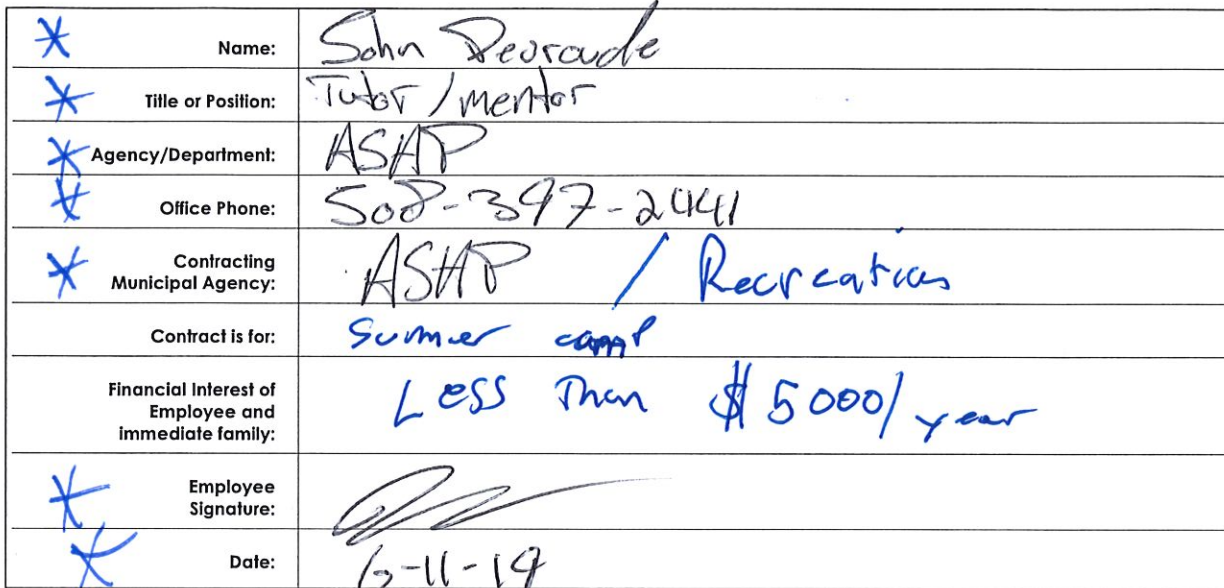 Name: John
Title or Position: Tutor / mentor
Agency/Department: ASAP
Office Phone: 508-397-2441
Contracting
Municipal Agency: ASAP / Recreation
Contract is for: Summer camp
Financial Interest of
Employee and
immediate family: Less Than $5000/year
Employee
Signature:
Date: 6-11-14